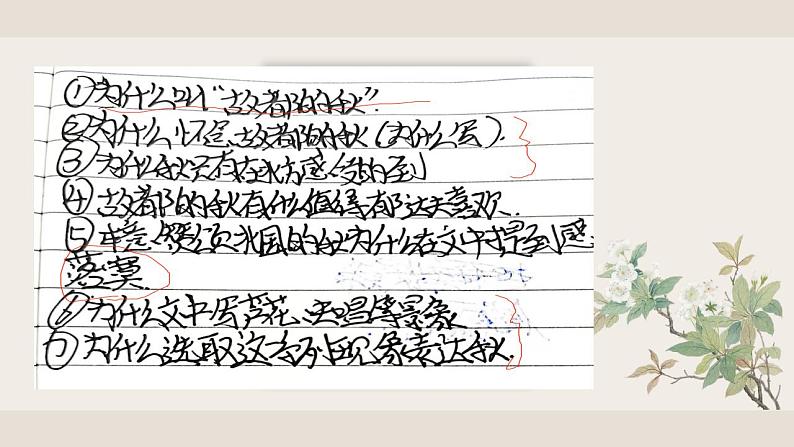 ①为什么叫“故都的秋”.
②为什么怀念故都的秋(为什么写).
③为什么秋只有在北方感受的到
④故都的秋有什么值得郁达夫喜欢.
⑤本意颂祖国的秋为什么在文中提到感
落寞.
⑥为什么文中写芦花、天唱等景象
⑦为什么选取这部分现象表达秋.